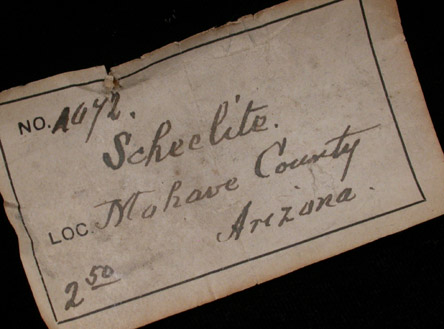 NO. A672.
Scheelite.
LOC. Mohave County
Arizona.
2 50